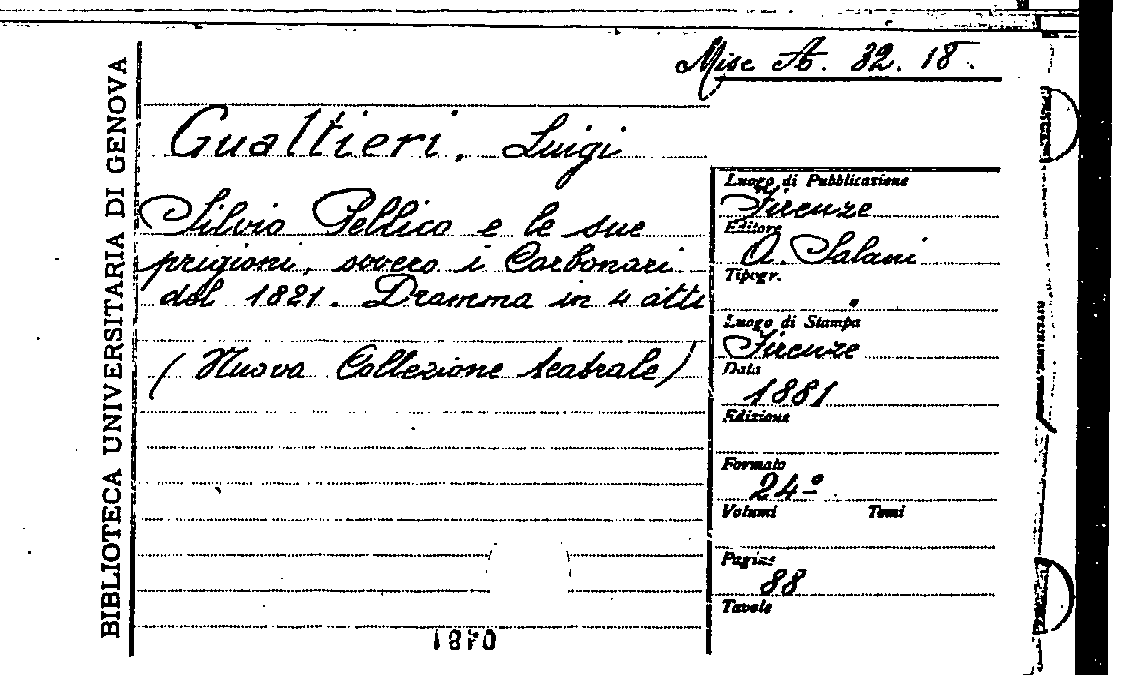 Misc A. 32. 18.
BIBLIOTECA UNIVERSITARIA DI GENOVA
Gualtieri, Luigi
Silvio Pellico e le sue
prigioni, ovvero i Carbonari
del 1821. Dramma in 4 atti
(Nuova Collezione teatrale)
Luogo di Pubblicazione
Firenze
Editore
A. Salani
Tipogr.
Luogo di Stampa
Firenze
Data
1881
Edizione
Formato
24º
Volumi Tomi
Pagine
88
Tavole